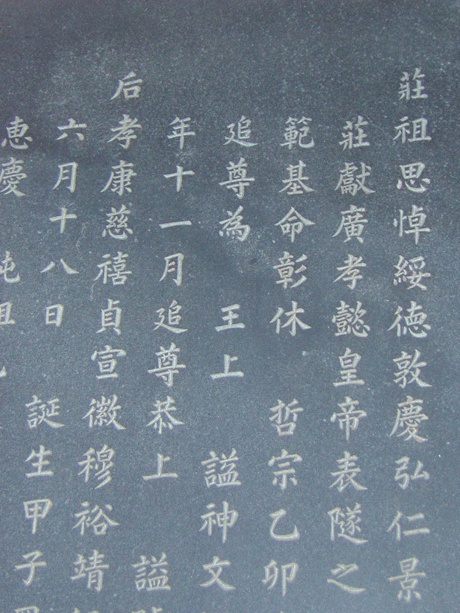 莊祖思悼綏德敦慶弘仁景
莊獻廣孝懿皇帝表隧之
範基命彰休 哲宗乙卯
追尊為 王上 謚神文
年十一月追尊恭上 謚
后孝康慈禧貞宣徽穆裕靖
六月十八日 誕生甲子
惠慶 純祖